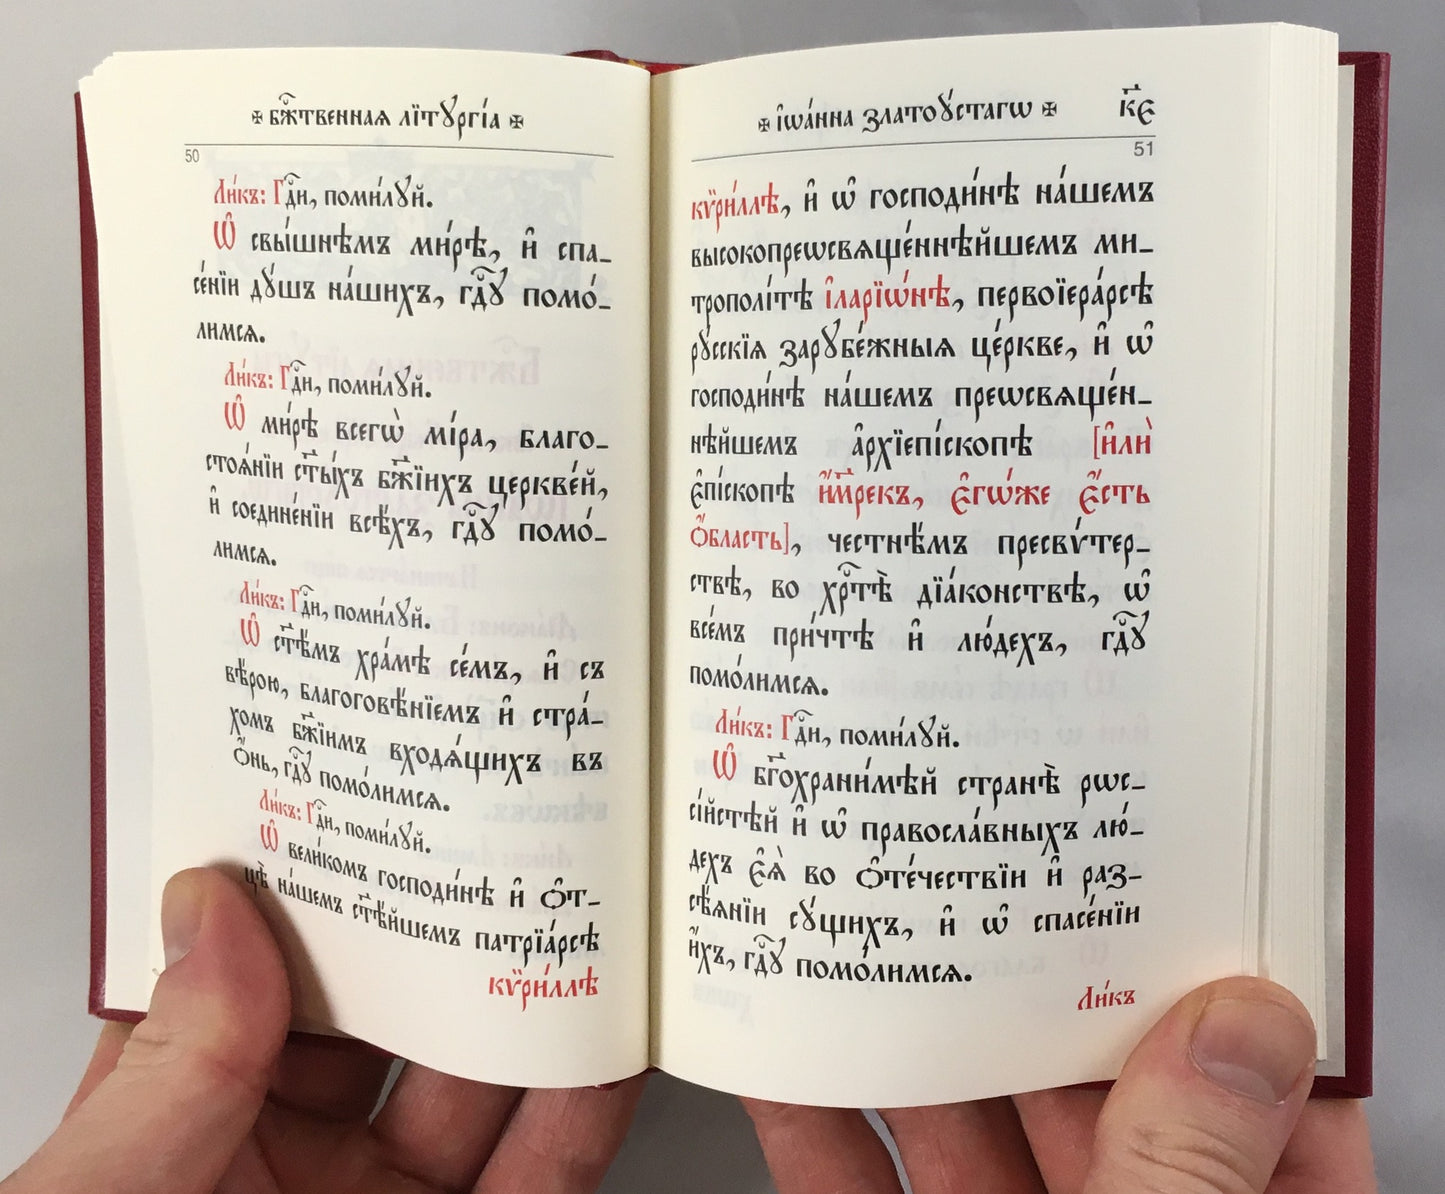 ✠ бж҃твеннаѧ лїтꙋргі́а ✠
50
Ли́къ: Гдⷭ҇и, поми́лꙋй.
Ѡ҆ свы́шнѣмъ ми́рѣ, и҆ спа_
се́нїи дꙋ́шъ на́шихъ, гдⷭ҇ꙋ помо́_
лимсѧ.
Ли́къ: Гдⷭ҇и, поми́лꙋй.
Ѡ҆ ми́рѣ всегѡ̀ мі́ра, благо_
стоѧ́нїи ст҃ы́хъ бж҃їихъ церкве́й,
и҆ соедине́нїи всѣ́хъ, гдⷭ҇ꙋ помо́_
лимсѧ.
Ли́къ: Гдⷭ҇и, поми́лꙋй.
Ѡ҆ ст҃ѣ́мъ хра́мѣ се́мъ, и҆ съ
вѣ́рою, благоговѣ́нїемъ и҆ стра́_
хомъ бж҃їимъ входѧ́щихъ въ
ѻ҆́нь, гдⷭ҇ꙋ помо́лимсѧ.
Ли́къ: Гдⷭ҇и, поми́лꙋй.
Ѡ҆ вели́комъ господи́нѣ и҆ ѻ҆т_
цѣ̀ на́шемъ ст҃ѣ́йшемъ патрїа́рсѣ
кѷри́ллѣ
✠ і҆ѡа́нна златоꙋ́стагѡ ✠ к҃є
51
кѷри́ллѣ, и҆ ѡ҆ господи́нѣ на́шемъ
высокопреѡсвѧще́ннѣйшемъ ми_
трополі́тѣ і҆ларїѡ́нѣ, первоїера́рсѣ
рꙋ́сскїѧ зарꙋбе́жныѧ це́ркве, и҆ ѡ҆
господи́нѣ на́шемъ преѡсвѧще́н_
нѣйшемъ а҆рхїепі́скопѣ [и҆лѝ
є҆пі́скопѣ и҆́м҃рекъ, є҆гѡ́же є҆́сть
ѻ҆́бласть], честнѣ́мъ пресвѵ́тер_
ствѣ, во хрⷭ҇тѣ̀ дїа́конствѣ, ѡ҆
все́мъ при́чтѣ и҆ лю́дехъ, гдⷭ҇ꙋ
помо́лимсѧ.
Ли́къ: Гдⷭ҇и, поми́лꙋй.
Ѡ҆ бг҃охрани́мѣй странѣ̀ рѡс_
сі́йстѣй и҆ ѡ҆ правосла́вныхъ лю́_
дехъ є҆ѧ̀ во ѻ҆те́чествїи и҆ раз_
сѣ́ѧнїи сꙋ́щихъ, и҆ ѡ҆ спасе́нїи
и҆́хъ, гдⷭ҇ꙋ помо́лимсѧ.
Ли́къ